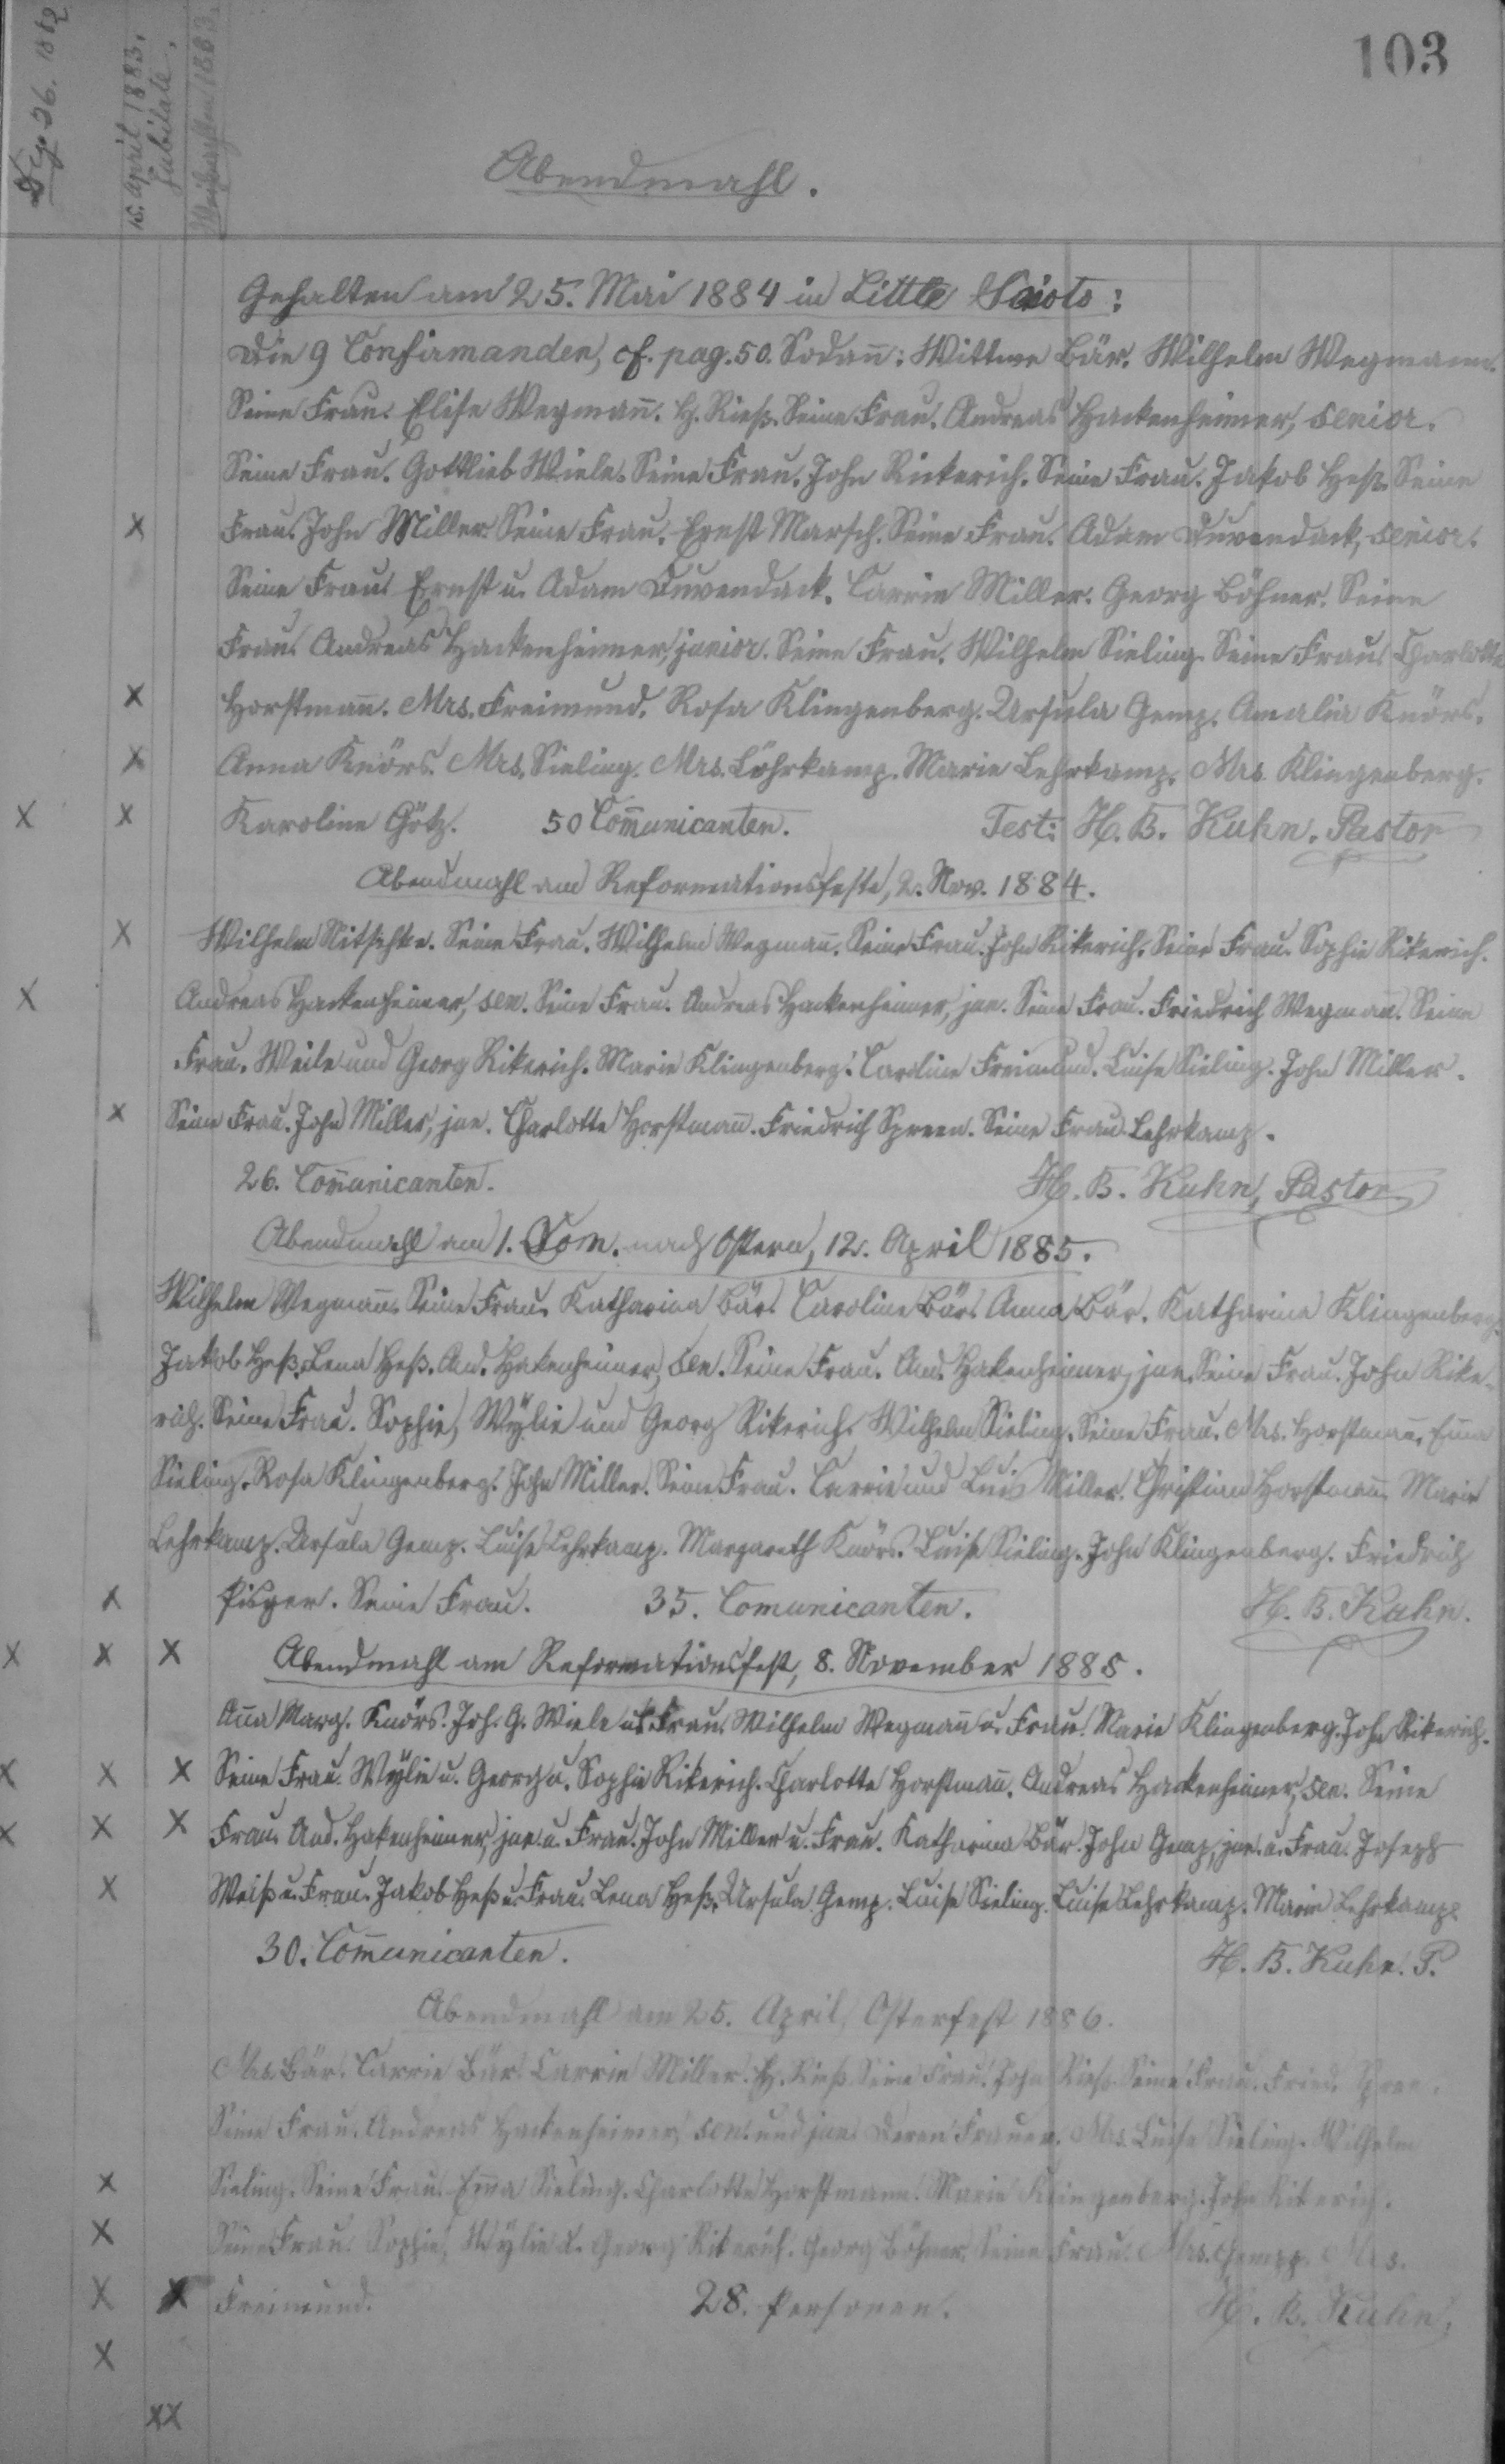 103
Dez 26. 1882
15. April 1883.
Jubilate.
Weihnachten 1883.
Abendmahl.
Gehalten am 25. Mai 1884 in Little Scioto:
Die 9 Confirmanden, cf. pag. 50. Sodan̄: Wittwe Bär. Wilhelm Wegmann.
Seine Frau. Elise Wegman̄. H. Rieß. Seine Frau. Andreas Hackenheimer, senior.
Seine Frau. Gottlieb Wiele. Seine Frau. John Rickerich. Seine Frau. Jakob Heß. Seine
Frau. John Miller. Seine Frau. Ernst Marsch. Seine Frau. Adam Duvendack, senior.
Seine Frau. Ernst u. Adam Duvendack. Carrie Miller. Georg Böhner. Seine
Frau. Andreas Hackenheimer, junior. Seine Frau. Wilhelm Sieling. Seine Frau. Charlotte
Horstman̄. Mrs. Freimund. Rosa Klingenberg. Ursula Gemp. Amalia Knörs.
Anna Knörs. Mrs. Sieling. Mrs. Löhrkamp. Marie Lehrkamp. Mrs. Klingenberg.
Karoline Götz. 50 Com̄unicanten. Test: H. B. Kuhn. Pastor
Abendmahl am Reformationsfeste, 2. Nov. 1884.
Wilhelm Nitschke. Seine Frau. Wilhelm Wegman̄. Seine Frau. John Rikerich. Seine Frau. Sophie Rikerich.
Andreas Hackenheimer, sen. Seine Frau. Andreas Hackenheimer, jun. Seine Frau. Friedrich Wegman̄. Seine
Frau. Weile und Georg Rikerich. Marie Klingenberg. Caroline Freimund. Luise Sieling. John Miller.
Seine Frau. John Miller, jun. Charlotte Horstman̄. Friedrich Spreen. Seine Frau. Lehrkamp.
26. Com̄unicanten. H. B. Kuhn, Pastor
Abendmahl am 1. Dom. nach Ostern, 12. April 1885.
Wilhelm Wegman̄. Seine Frau. Katharina Bär. Caroline Bär. Anna Bär. Katharina Klingenberg.
Jakob Heß. Lena Heß. And. Hakenheimer, sen. Seine Frau. And. Hakenheimer, jun. Seine Frau. John Rike-
rich. Seine Frau. Sophie, Wylie und Georg Rikerich. Wilhelm Sieling. Seine Frau. Mrs. Horstman̄. Em̄a
Sieling. Rosa Klingenberg. John Miller. Seine Frau. Carrie und Luis Miller. Christian Horstman̄. Marie
Lehrkamp. Ursula Gemp. Luise Lehrkamp. Margareth Knörs. Luise Sieling. John Klingenberg. Friedrich
Pilger. Seine Frau. 35. Comunicanten. H. B. Kuhn.
Abendmahl am Reformationsfest, 8. November 1885.
An̄a Marg. Knörs. Joh. G. Wiele u. Frau. Wilhelm Wegman̄ u. Frau. Marie Klingenberg. John Rikerich.
Seine Frau. Wylie u. Georg u. Sophie Rikerich. Charlotte Horstman̄. Andreas Hackenheimer, sen. Seine
Frau. And. Hakenheimer, jun. u. Frau. John Miller u. Frau. Katharina Bär. John Gemp, jun. u. Frau. Joseph
Weiß u. Frau. Jakob Heß u. Frau. Lena Heß. Ursula Gemp. Luise Sieling. Luise Lehrkamp. Marie Lehrkamp.
30. Com̄unicanten. H. B. Kuhn. P.
Abendmahl am 25. April, Osterfest 1886.
Mrs. Bär. Carrie Bär. Carrie Miller. H. Rieß. Seine Frau. John Rieß. Seine Frau. Fried. Spree.
Seine Frau. Andreas Hackenheimer, sen. und jun. Deren Frauen. Mrs. Luise Sieling. Wilhelm
Sieling. Seine Frau. Em̄a Sieling. Charlotte Horstmann. Marie Klingenberg. John Rikerich.
Seine Frau. Sophie, Wylie & Georg Rikerich. Georg Böhner. Seine Frau. Mrs. Gempp. Mrs.
Freimund. 28. Personen. H. B. Kuhn.